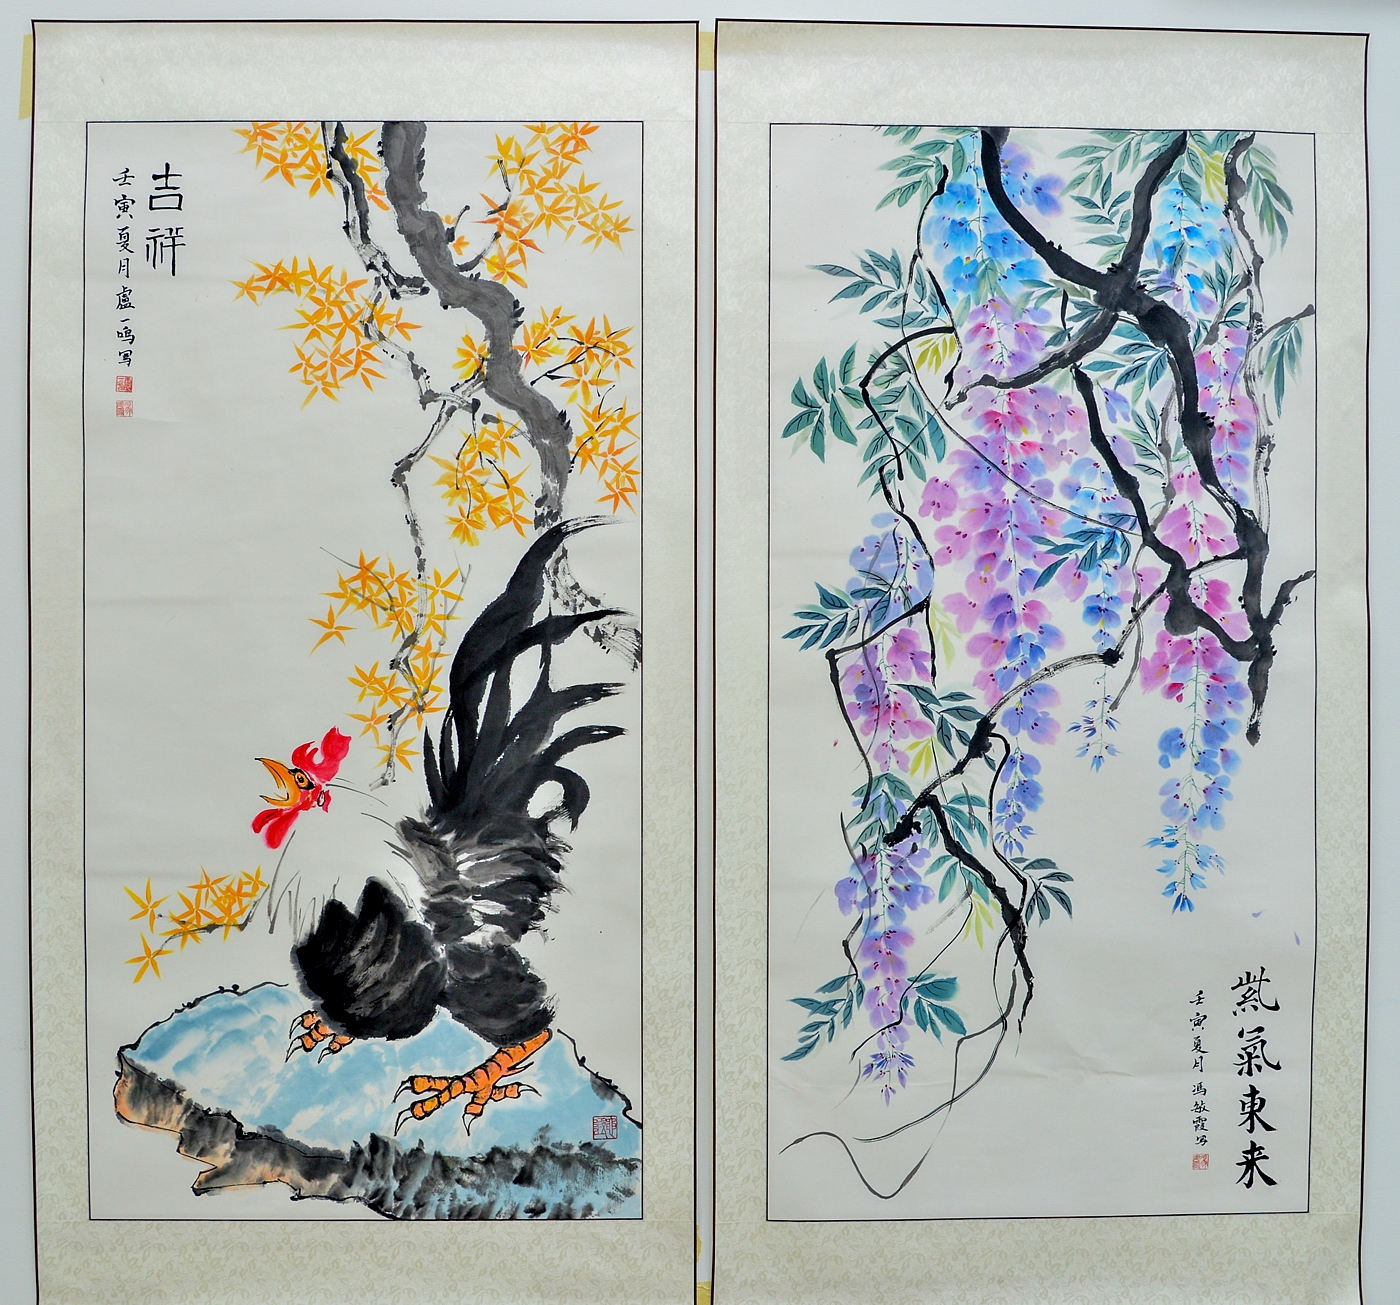 吉祥
壬寅夏月盧一鳴写
紫氣東来
壬寅夏月馮敏霞写